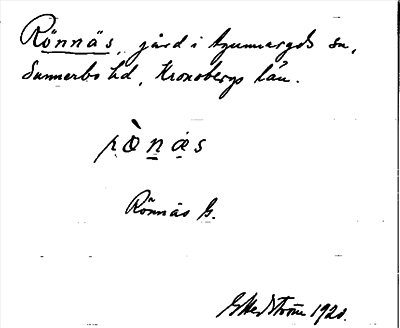 Rönnäs, gård i Agunnaryds sn,
Sunnerbo hd, Kronobergs län.
rö̀nạ̈s
Rönnäs G.
G Hedström 1920.